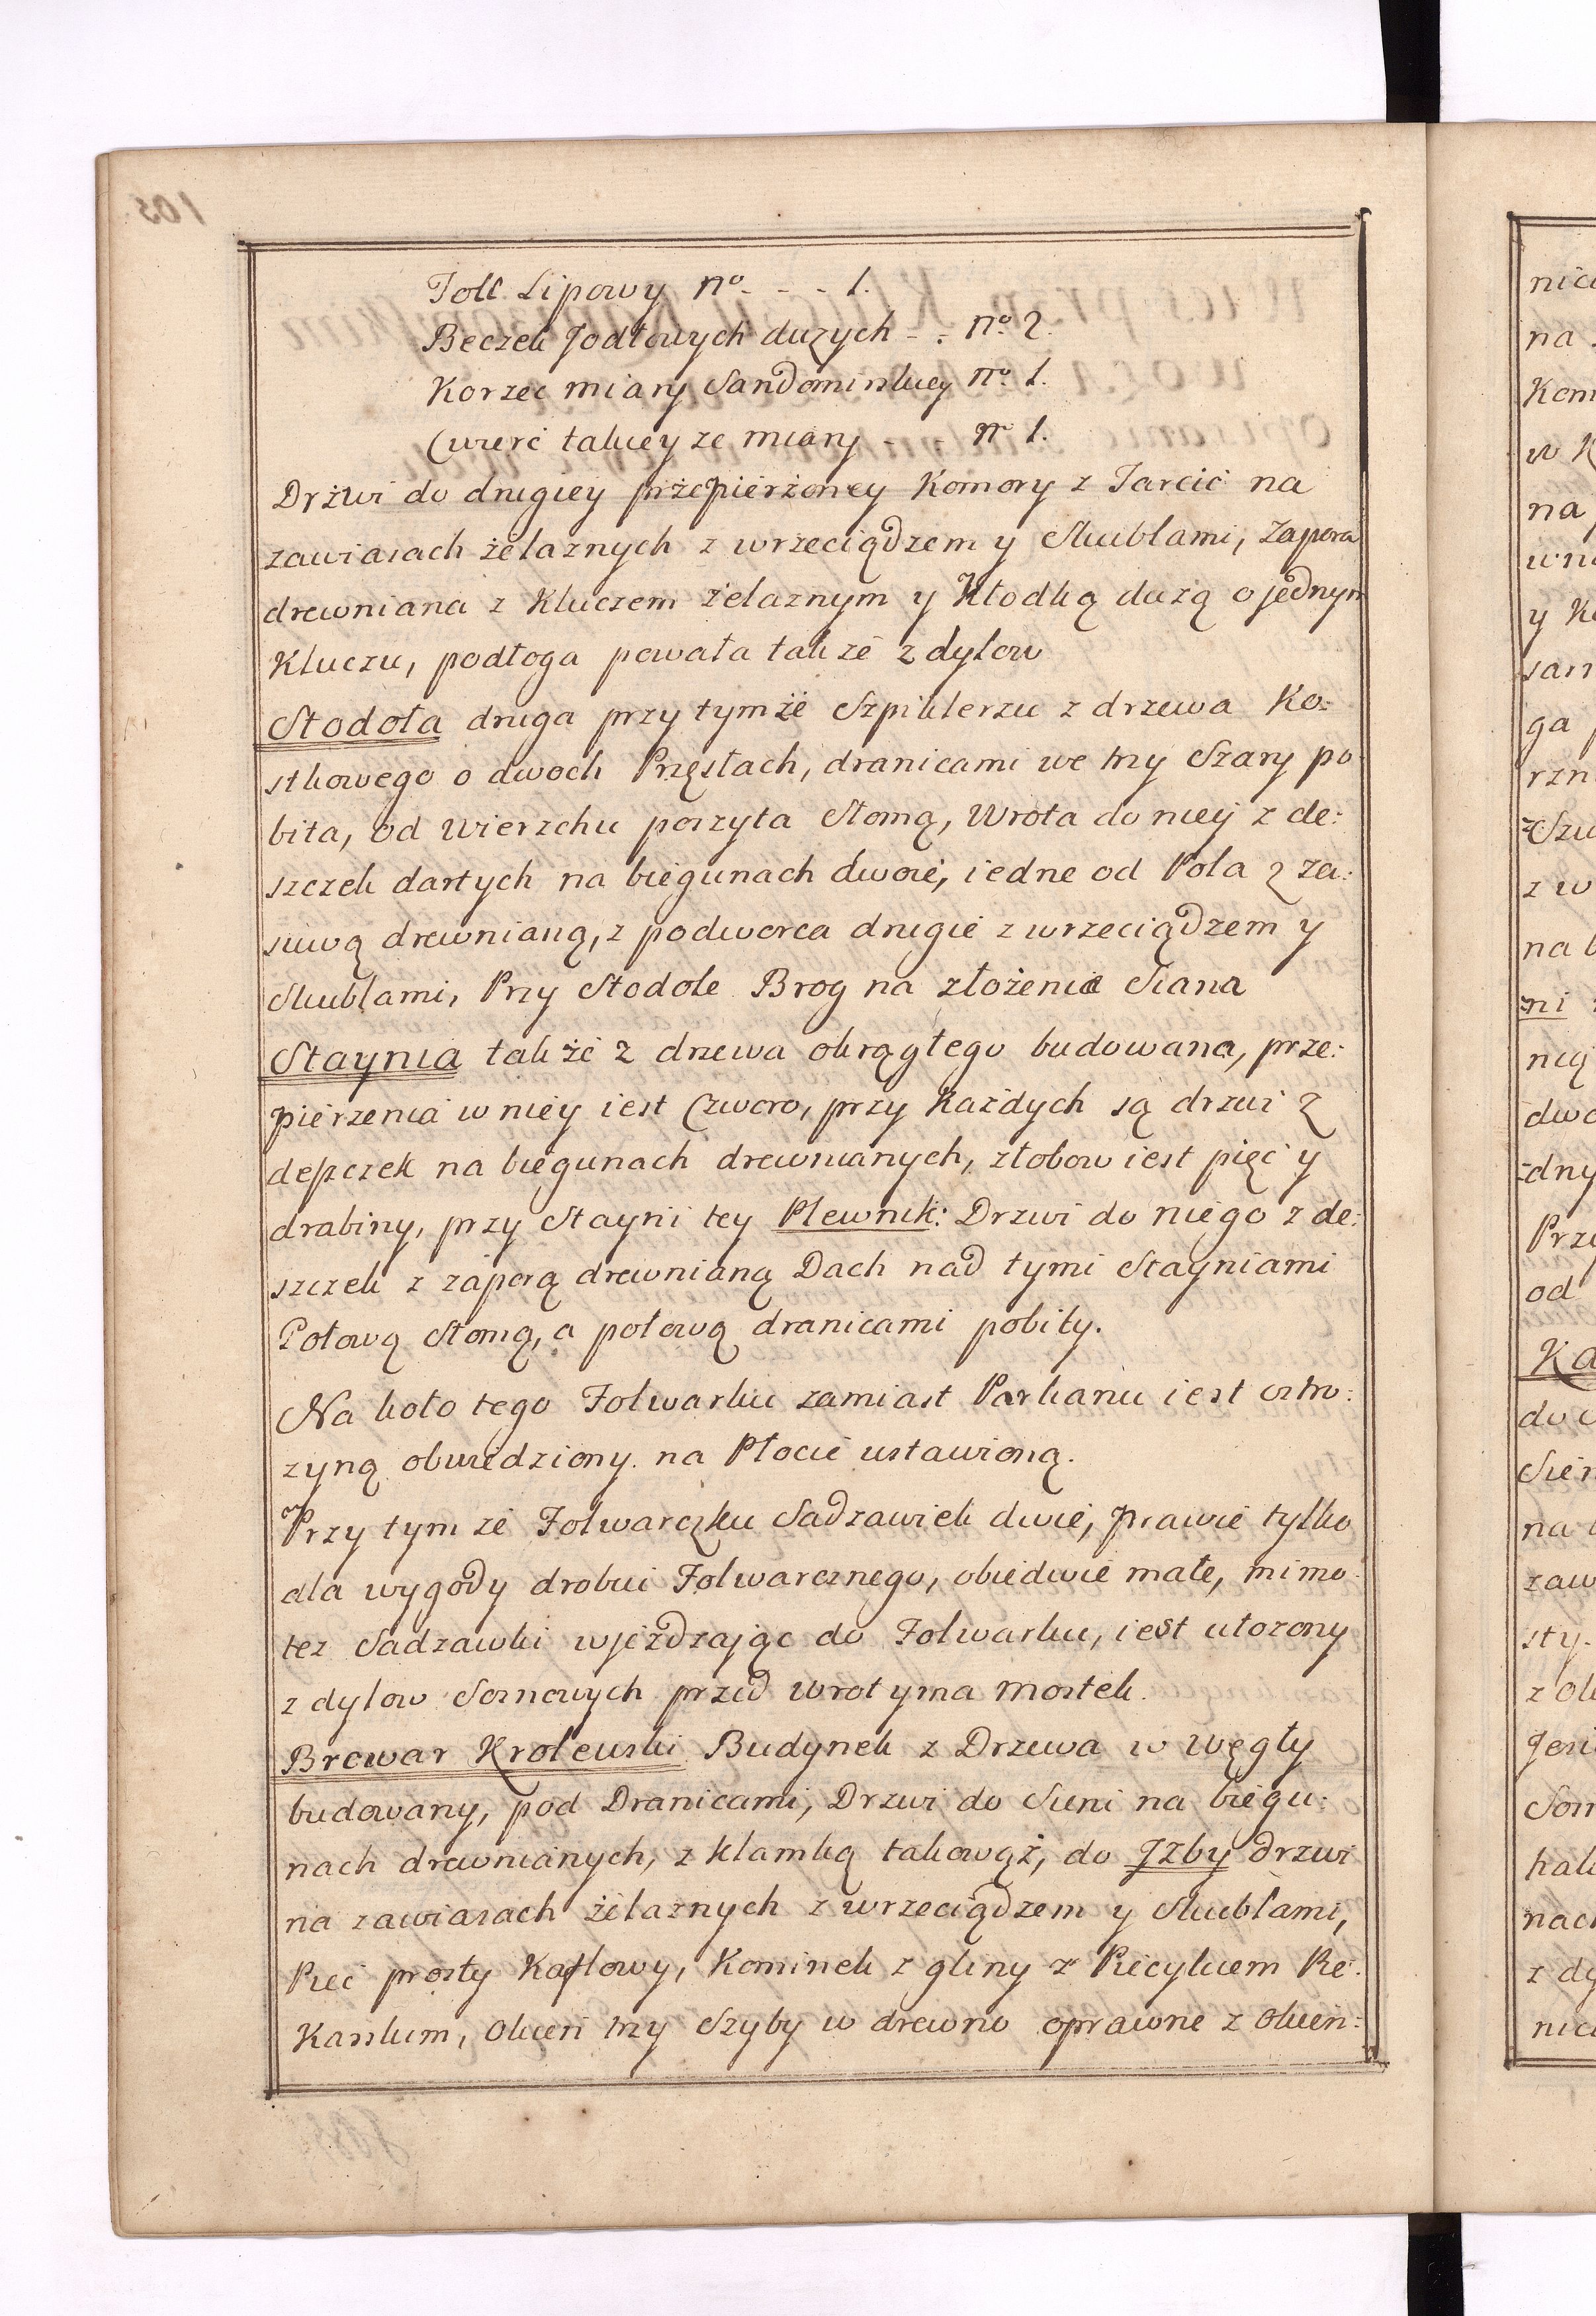 Tołl Lipowy no. - - - 1.
Beczek Jodłowych duzych - - No. 2.
Korzec miary Sandomirskiey no. 1.
Cwierć takiey ze miary - - - no 1.
Drźwi do drugiey przepierżoney Komory z Tarcic na
zawiasach żelaznych z wrzeciądzem y Skublami, Zapora
drewniana z Kluczem żelaznym y Kłodką dużą o jednym
Kluczu, podłoga powała takze z dylow
Stodoła druga przy tymże Szpiklerzu z drzewa Ko:
stkowego o dwoch Pręsłach, dranicami we trzy Szary po
bita, od wierzchu poszyta Słomą, Wrota do niey z de:
szczek dartych na biegunach dwoie, iedne od Pola z za:
suwą drewnianą, z podworca drugie z wrzeciądzem y
Skublami, Przy Stodole Brog na złożenie Siana
Staynia także z drzewa okrągłego budowana, prze:
pierzenia w niey iest Czworo, przy Każdych są drzwi z
desczek na biegunach drewnianych, złobow iest pięć y
drabiny, przy Stayni tey Plewnik: Drzwi do niego z de:
szczek z zaporą drewnianą Dach nad tymi Stayniami
Połową Słomą, a połową dranicami pobity.
Na koło tego Folwarku zamiast Parkanu iest ostro:
zyną obwiedziony. na Płocie ustawioną.
Przy tym ze Folwarczku Sadzawiek dwie, prawie tylko
dla wygody drobui Folwarcznego, obiedwie małe, mimo
tez Sadzawki wjeżdzając do Folwarku, iest ułozony
z dylow Sosnowych przed wrotyma mostek.
Browar Krolewski Budynek z Drzewa w węgły
budowany, pod Dranicami, Drzwi do Sieni na biegu:
nach drewnianych, z klamką takowąż, do Jzby drzwi
na zawiasach żelaznych z wrzeciądzem y Skublami,
Piec prosty Kaflowy, Kominek z gliny z Piecykiem Pie:
Karskim, Okien trzy Szyby w drewno oprawne z okien: